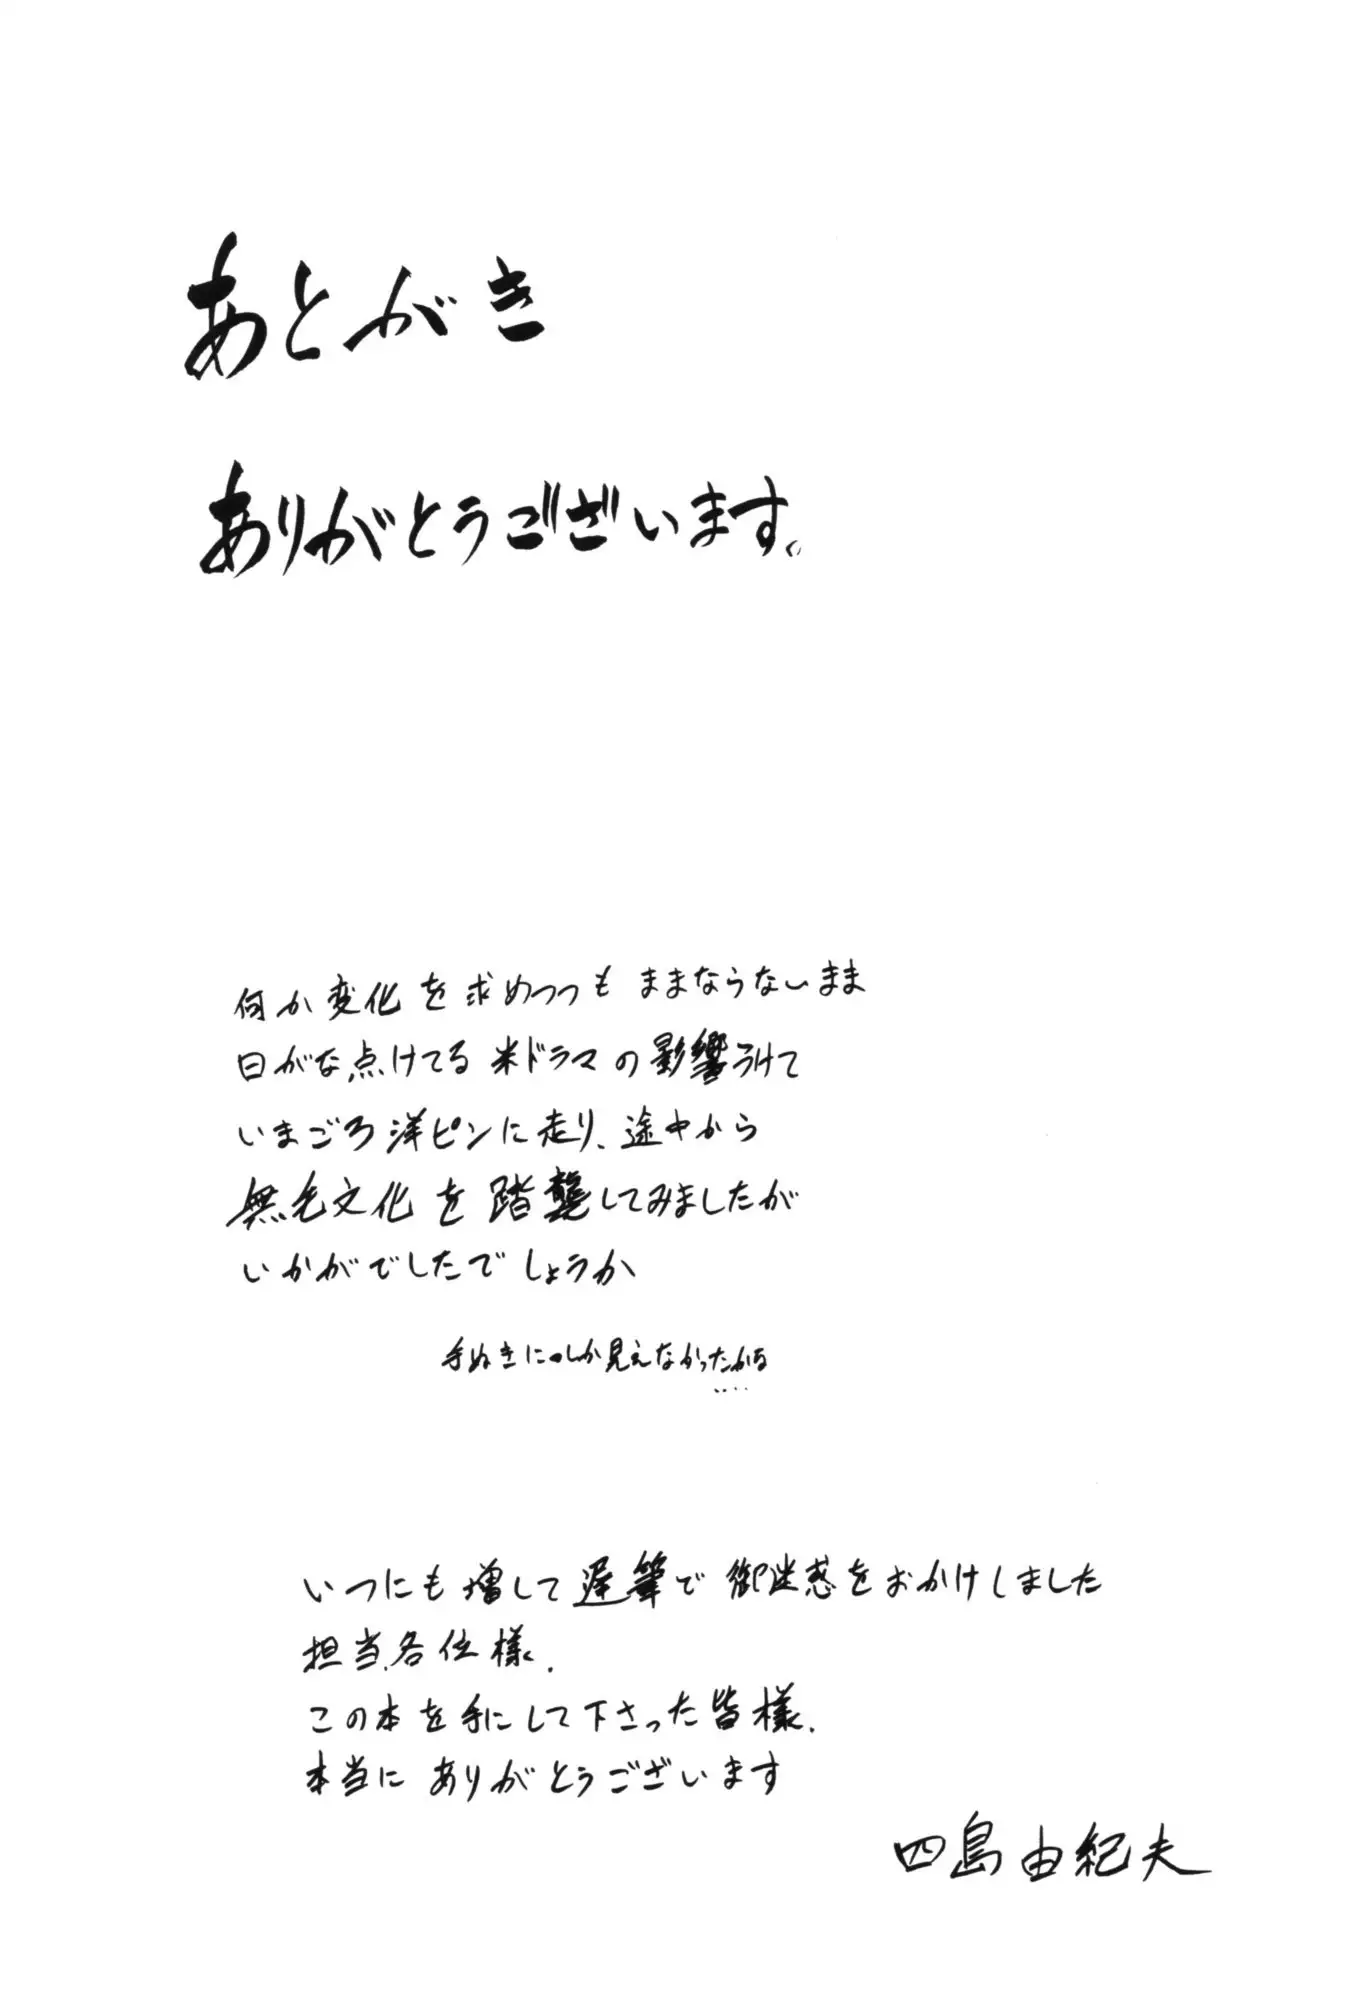 あとがき
ありがとうございます。
何か変化を求めつつもままならないまま
日がな点けてる米ドラマの影響うけて
いまごろ洋ピンに走り、途中から
無毛文化を踏襲してみましたが
いかがでしたでしょうか
手ぬきにしか見えなかったかな
‥‥
いつにも増して遅筆で御迷惑をおかけしました
担当各位様、
この本を手にして下さった皆様、
本当にありがとうございます
四島由紀夫